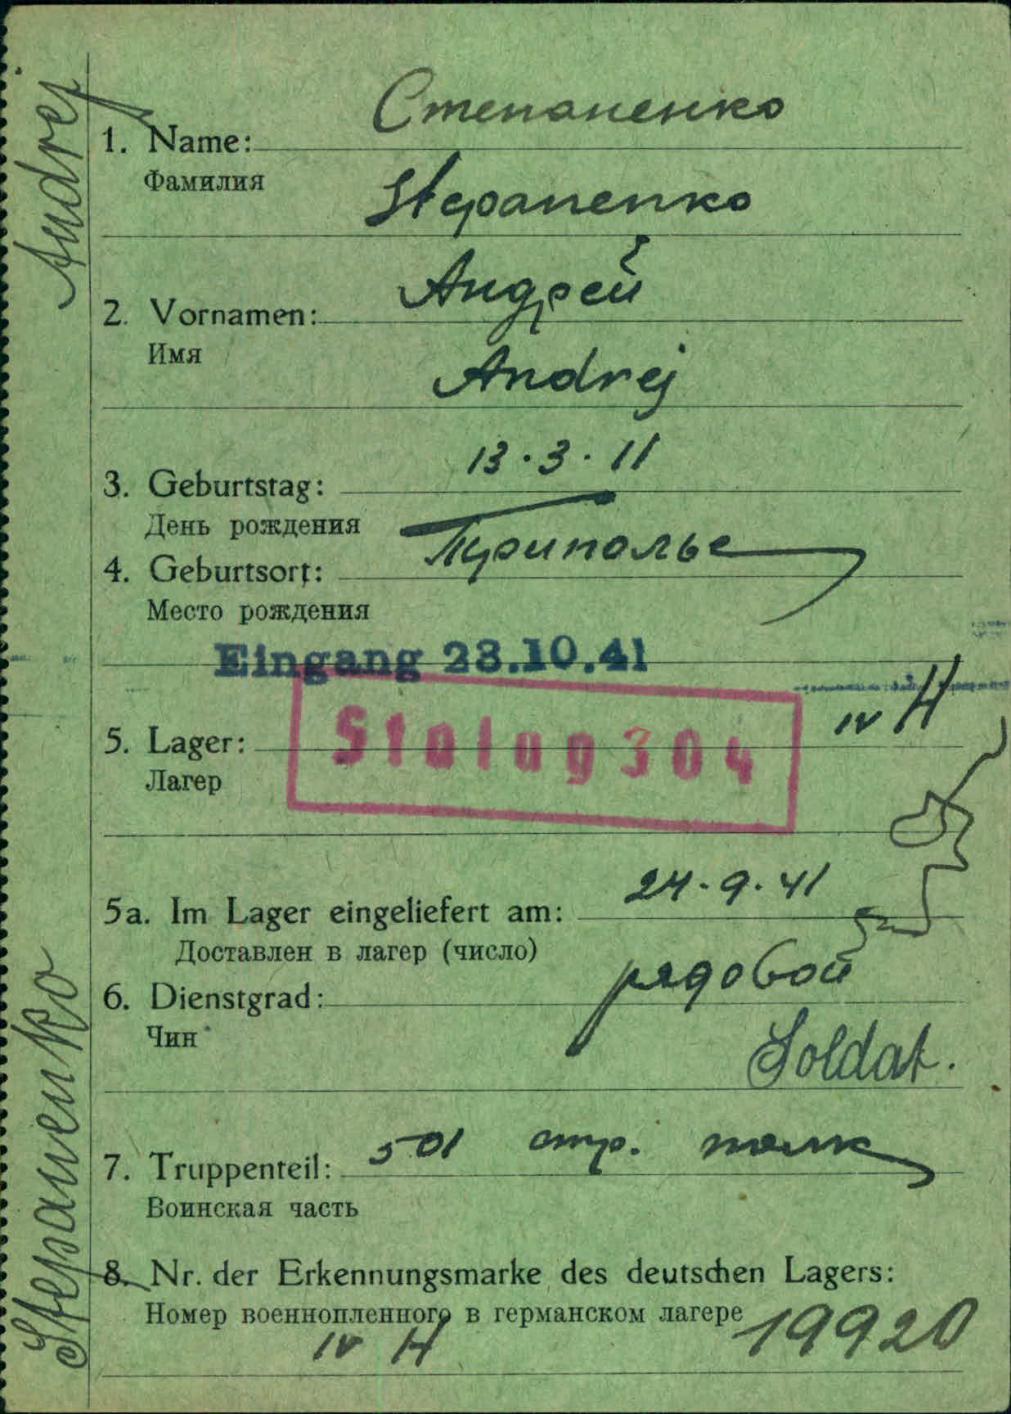 Andrej
Stepanenko
Степаненко
1. Name:
Фамилия
Stepanenko
Андрей
2. Vornamen:
Имя
Andrej
13.3.11
3. Geburtstag:
День рождения
Триполье
4. Geburtsort:
Место рождения
Eingang 23.10.41
IV H
5. Lager: Stalag 304
Лагер
24.9.41
5a. Im Lager eingeliefert am:
Доставлен в лагер (число)
рядовой
6. Dienstgrad:
Чин
Soldat.
7. Truppenteil: 501 стр. полк
Воинская часть
8. Nr. der Erkennungsmarke des deutschen Lagers:
Номер военнопленного в германском лагере
IV H 19920